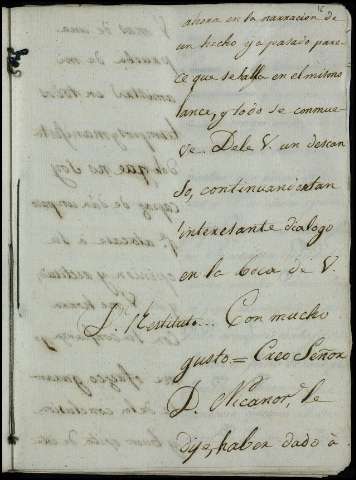 ahora en la narracion de
un hecho ya pasado pare-
ce que se halla en el mismo
lance, y todo se conmue-
ve. Dele V. un descan
so, continuará tan
interesante dialogo
en la boca de V.
D.n Restituto... Con mucho
gusto = Creo Señor
D. Nicanor, le
dije, haber dado à